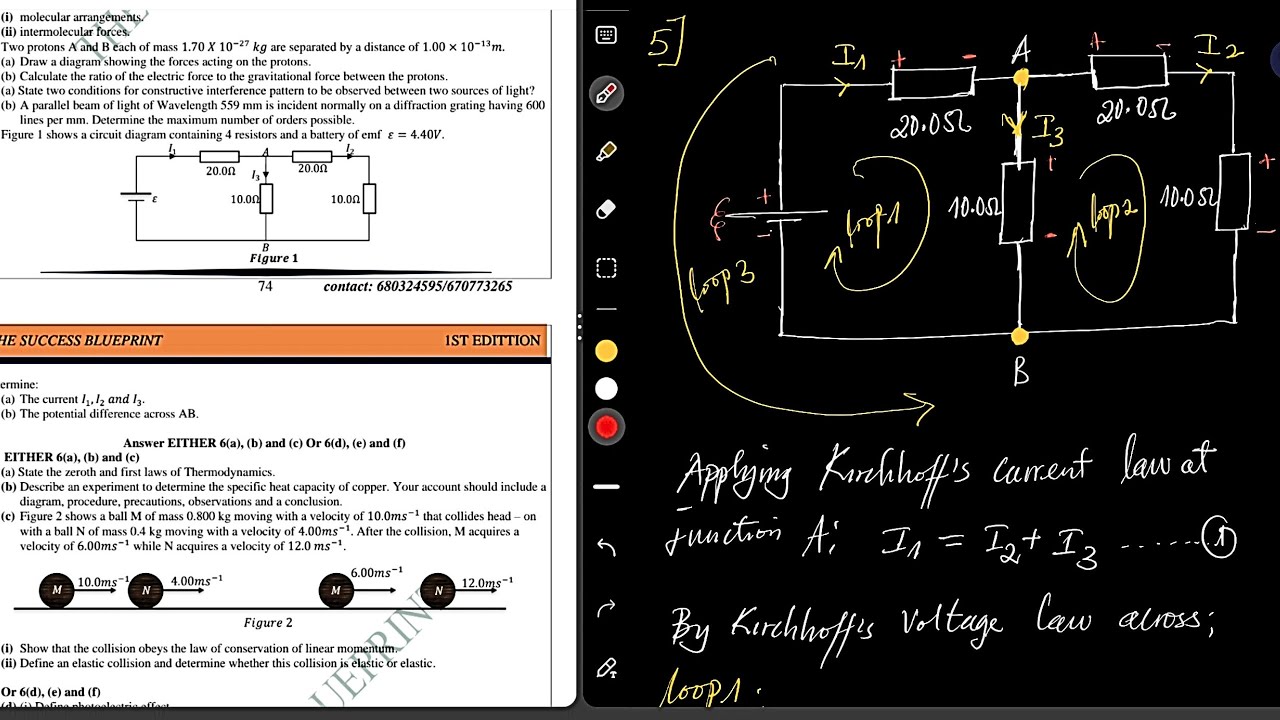 (i) molecular arrangements.
(ii) intermolecular forces.
Two protons A and B each of mass 1.70 X 10⁻²⁷ kg are separated by a distance of 1.00 × 10⁻¹³m.
(a) Draw a diagram showing the forces acting on the protons.
(b) Calculate the ratio of the electric force to the gravitational force between the protons.
(a) State two conditions for constructive interference pattern to be observed between two sources of light?
(b) A parallel beam of light of Wavelength 559 mm is incident normally on a diffraction grating having 600
lines per mm. Determine the maximum number of orders possible.
Figure 1 shows a circuit diagram containing 4 resistors and a battery of emf ε = 4.40V.
I₁ A I₂
20.0Ω I₃ 20.0Ω
ε 10.0Ω 10.0Ω
B
Figure 1
74 contact: 680324595/670773265
HE SUCCESS BLUEPRINT 1ST EDITTION
ermine:
(a) The current I₁, I₂ and I₃.
(b) The potential difference across AB.
Answer EITHER 6(a), (b) and (c) Or 6(d), (e) and (f)
EITHER 6(a), (b) and (c)
(a) State the zeroth and first laws of Thermodynamics.
(b) Describe an experiment to determine the specific heat capacity of copper. Your account should include a
diagram, procedure, precautions, observations and a conclusion.
(c) Figure 2 shows a ball M of mass 0.800 kg moving with a velocity of 10.0ms⁻¹ that collides head – on
with a ball N of mass 0.4 kg moving with a velocity of 4.00ms⁻¹. After the collision, M acquires a
velocity of 6.00ms⁻¹ while N acquires a velocity of 12.0 ms⁻¹.
M 10.0ms⁻¹ N 4.00ms⁻¹ M 6.00ms⁻¹ N 12.0ms⁻¹
Figure 2
(i) Show that the collision obeys the law of conservation of linear momentum.
(ii) Define an elastic collision and determine whether this collision is elastic or elastic.
Or 6(d), (e) and (f)
(d) (i) Define photoelectric effect
UEPRINT
5]
I₁ + - A + - I₂
20.0Ω I₃ 20.0Ω
ε + - loop1 10.0Ω + - loop2 10.0Ω + -
loop3
B
Applying Kirchhoff's current law at
junction A; I₁ = I₂ + I₃ ....... ①
By Kirchhoff's voltage law across;
loop1: